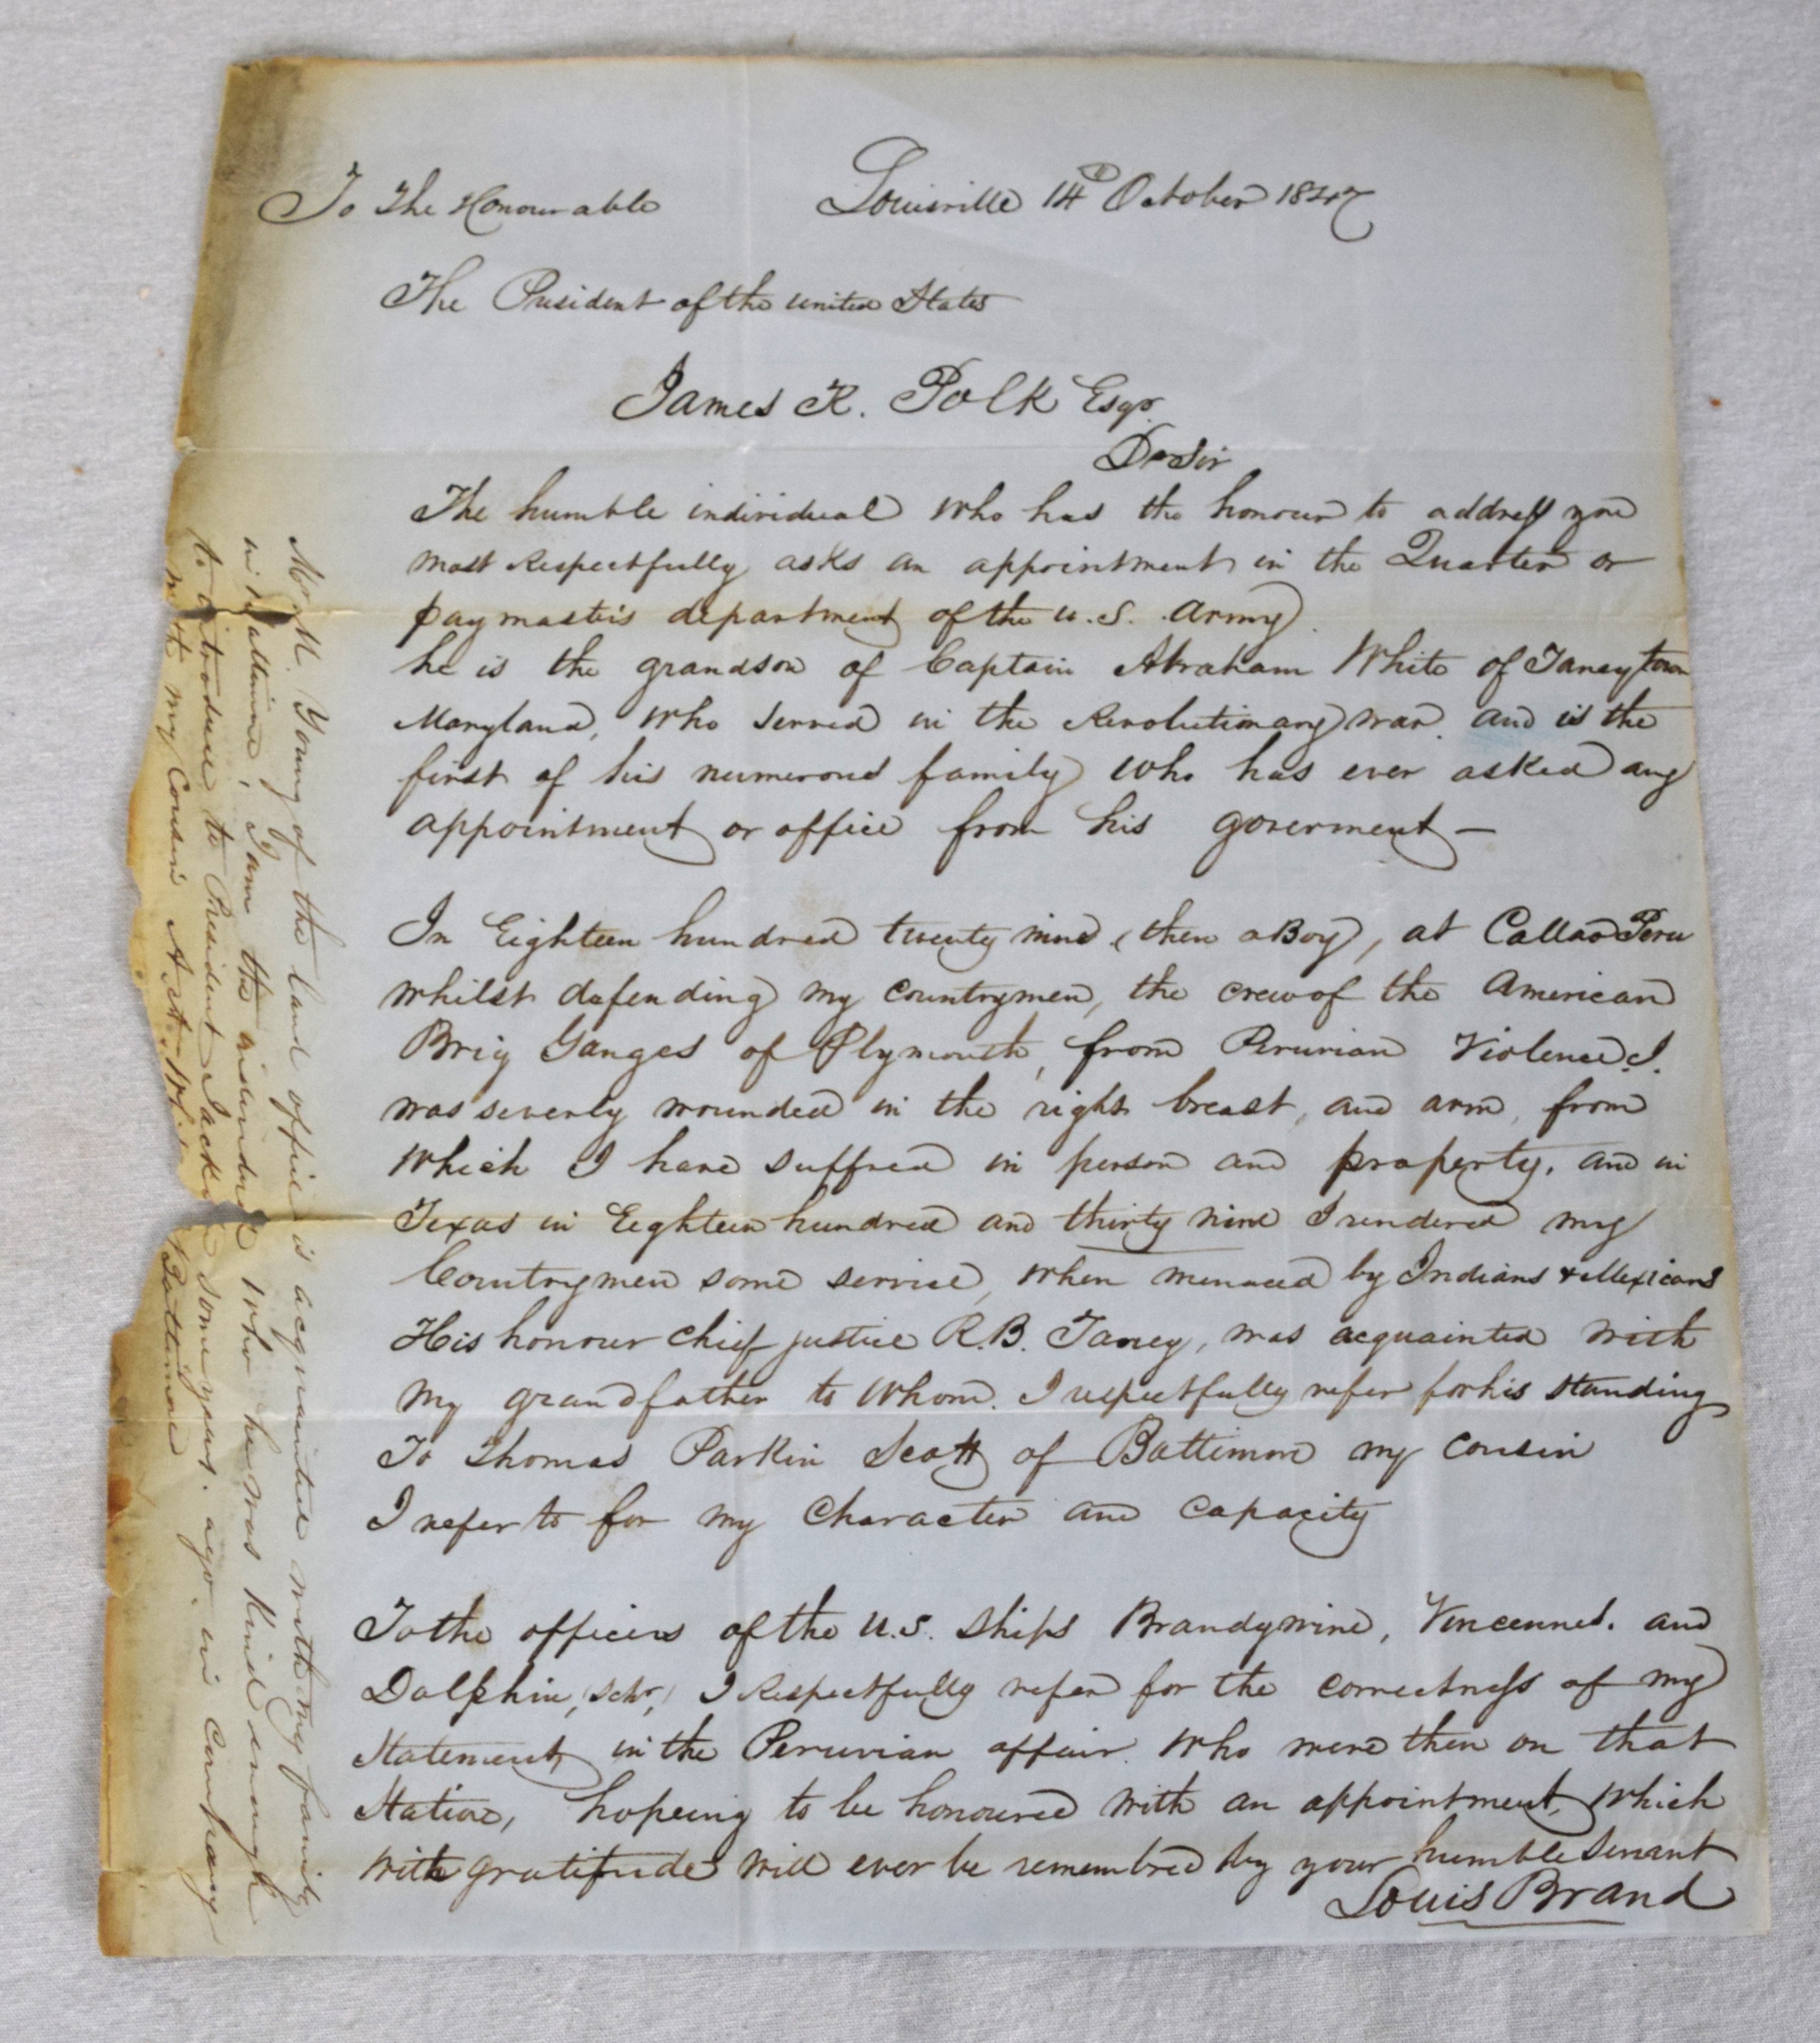 To The Honourable Louisville 14th October 1847
The President of the United States
James K. Polk Esqr.
Dr Sir
The humble individual who has the honour to address you
most Respectfully asks an appointment in the Quarter or
paymasters department of the U.S. Army.
he is the grandson of Captain Abraham White of Taneytown
Maryland, who served in the Revolutionary war. and is the
first of his numerous family who has ever asked any
appointment or office from his goverment —
In Eighteen hundred twenty nine (then a Boy), at Callao Peru
whilst defending my countrymen, the crew of the American
Brig Ganges of Plymouth, from Peruvian Violence, I.
was severly wounded in the right breast, and arm, from
which I have suffred in person and property, and in
Texas in Eighteen hundred and thirty nine I rendered my
Countrymen some service, when menaced by Indians & Mexicans
His honour chief justice R.B. Taney, was acquainted with
my grandfather to whom. I respectfully refer for his standing
To Thomas Parkin Scott of Baltimore my cousin
I refer to for my Character and capacity
To the officers of the U.S. Ships Brandywine, Vincennes. and
Dolphin, (schr,) I Respectfully refer for the correctness of my
Statement, in the Peruvian affair. who were then on that
Station, hopeing to be honoured with an appointment, which
with gratitude will ever be remembred by your humble servant
Louis Brand
Mr M. Young of the land office is acquainted with my family
in Baltimore, I am the individual who he was Kind enough
to introduce to President Jackson some years. ago. in Company
with my Cousin Baltimore